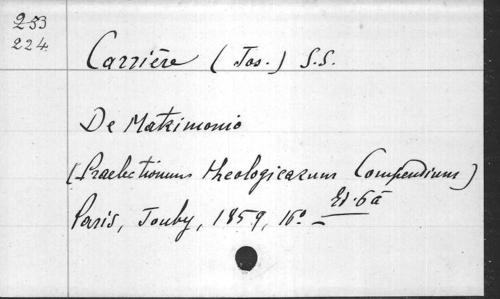 233
224
Carrière (Jos.) S.S.
De Matrimonio
(Praelectionum theologicarum Compendium)
Paris, Jouby, 1859, 16° – Ed. 6a